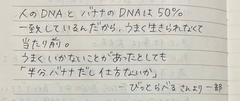 人のDNAとバナナのDNAは50%
一致しているんだから、うまく生きられなくて
当たり前。
うまくいかないことがあったとしても
「半分バナナだし仕方ないか」
ーぴっとらべる さんより一部